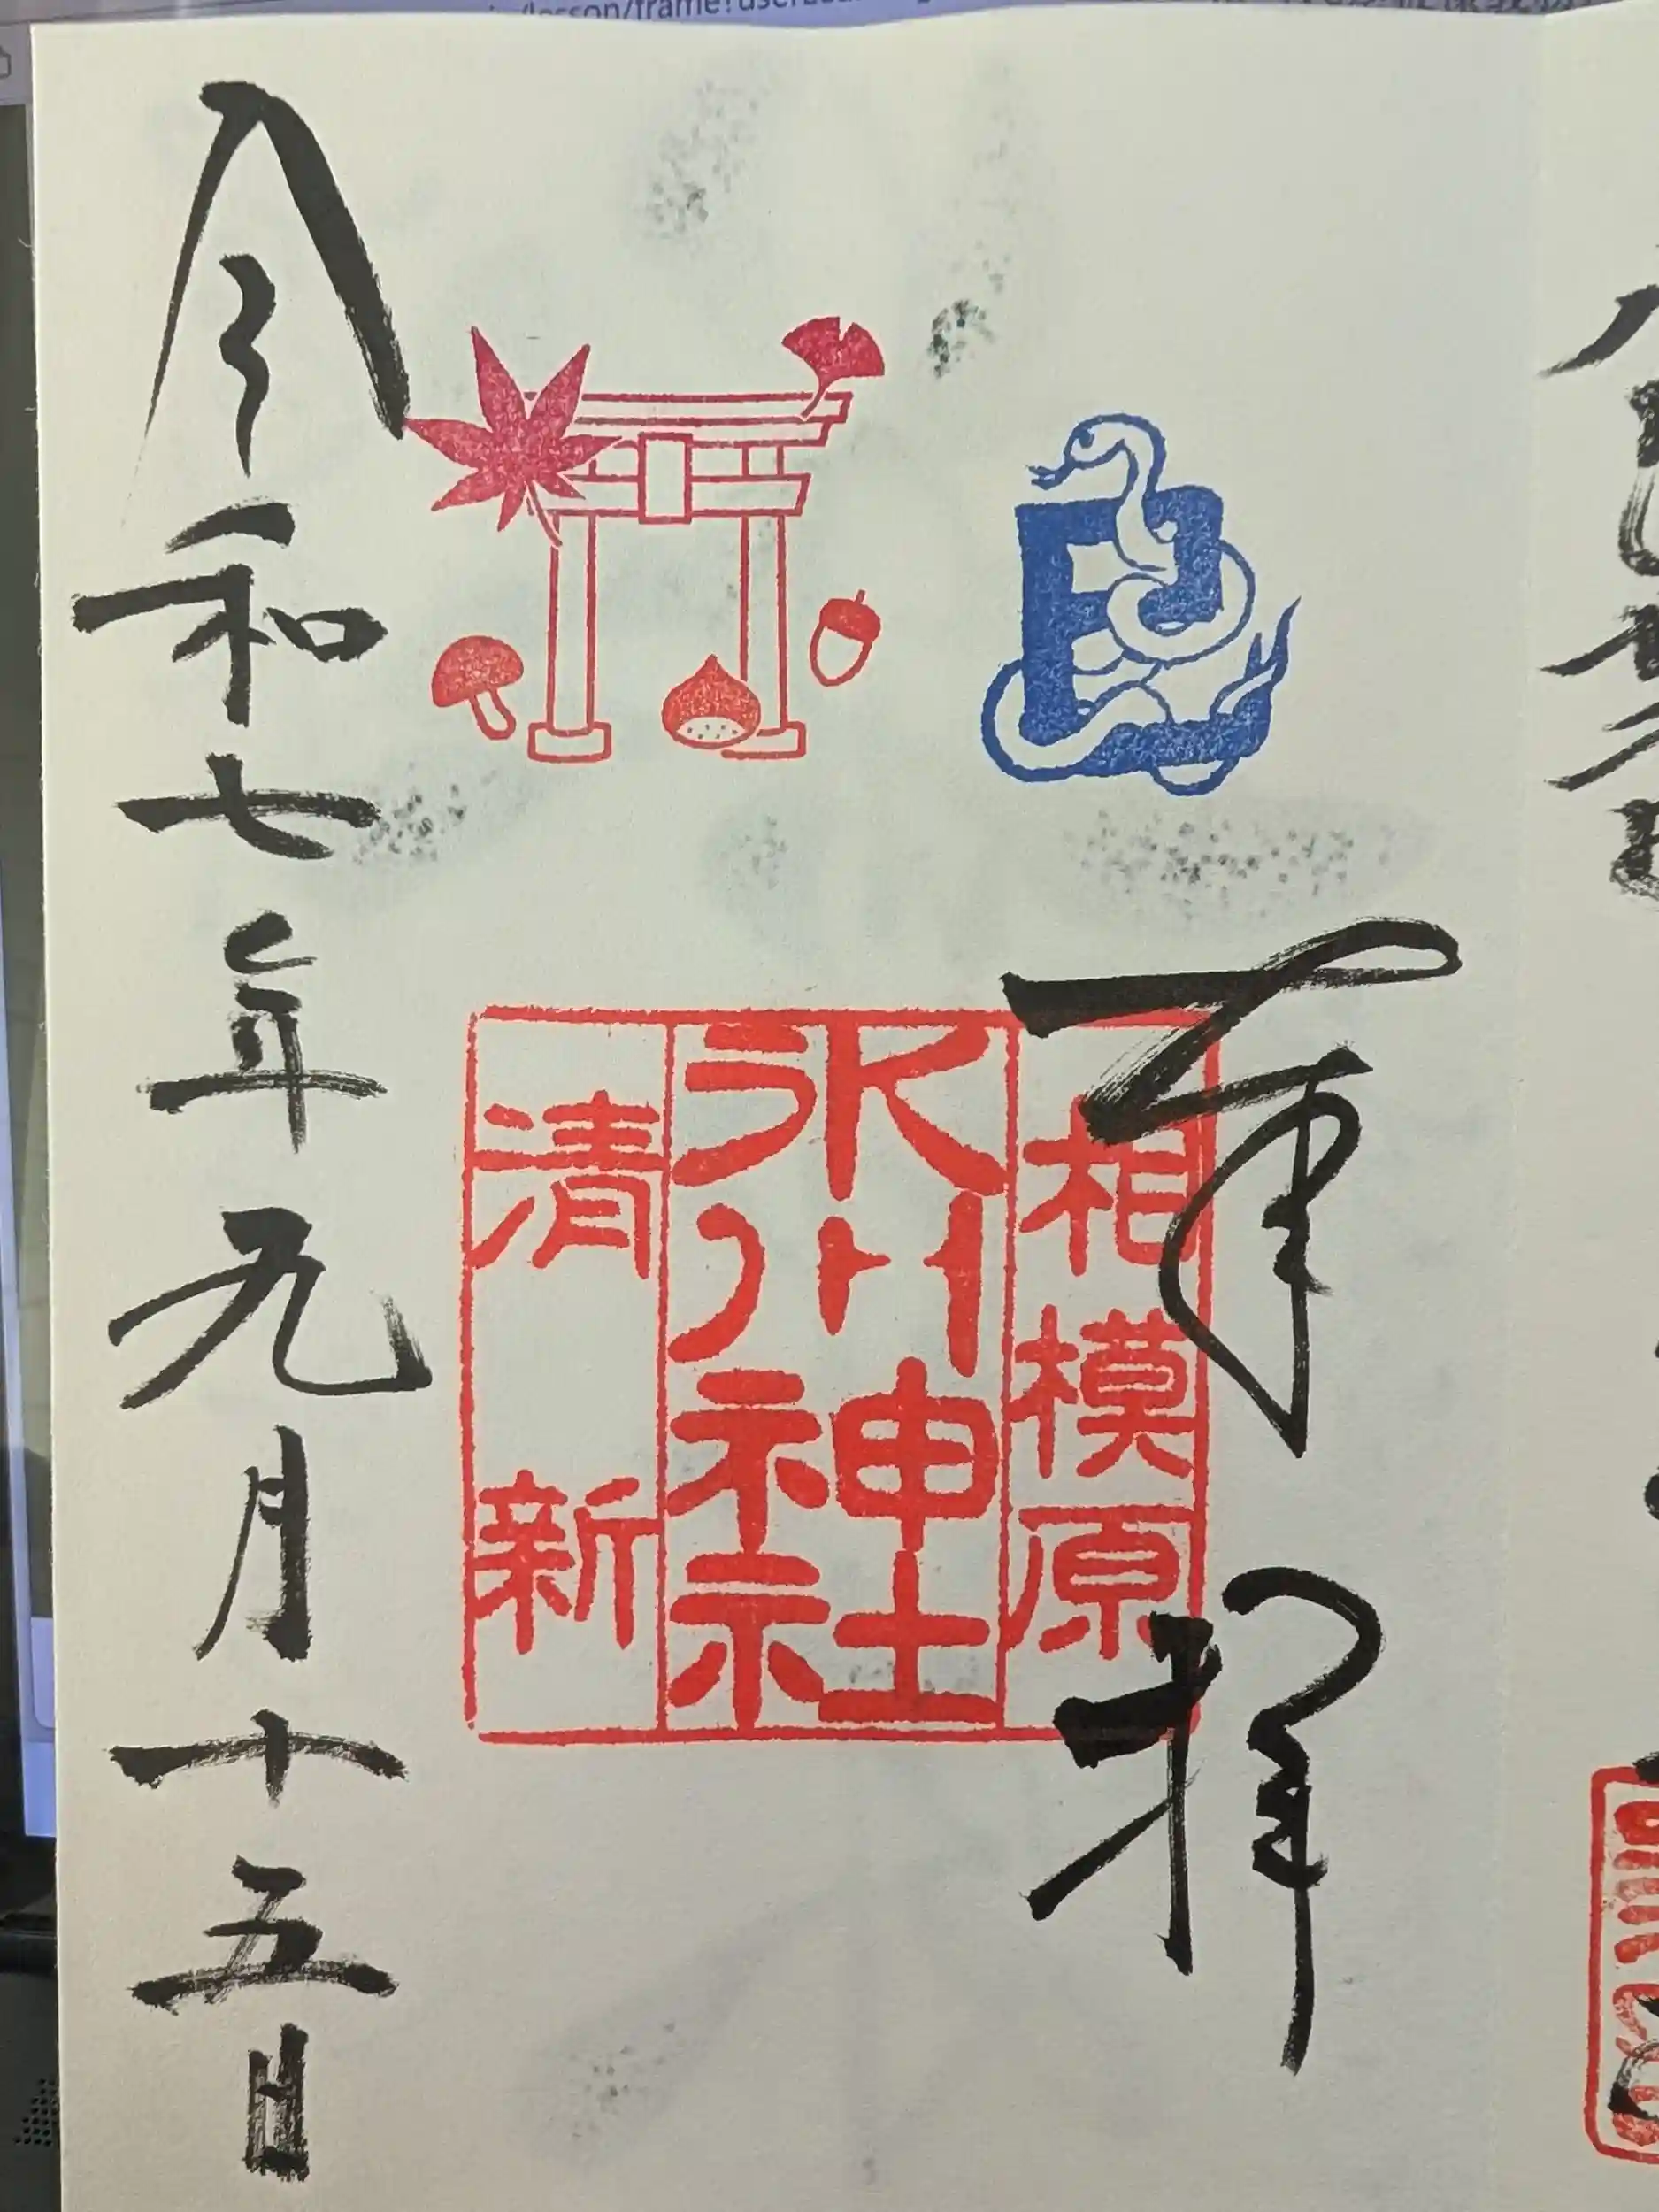 /lesson/frame?use
巳
奉拝
相模原
氷川神社
清新
令和七年九月十五日